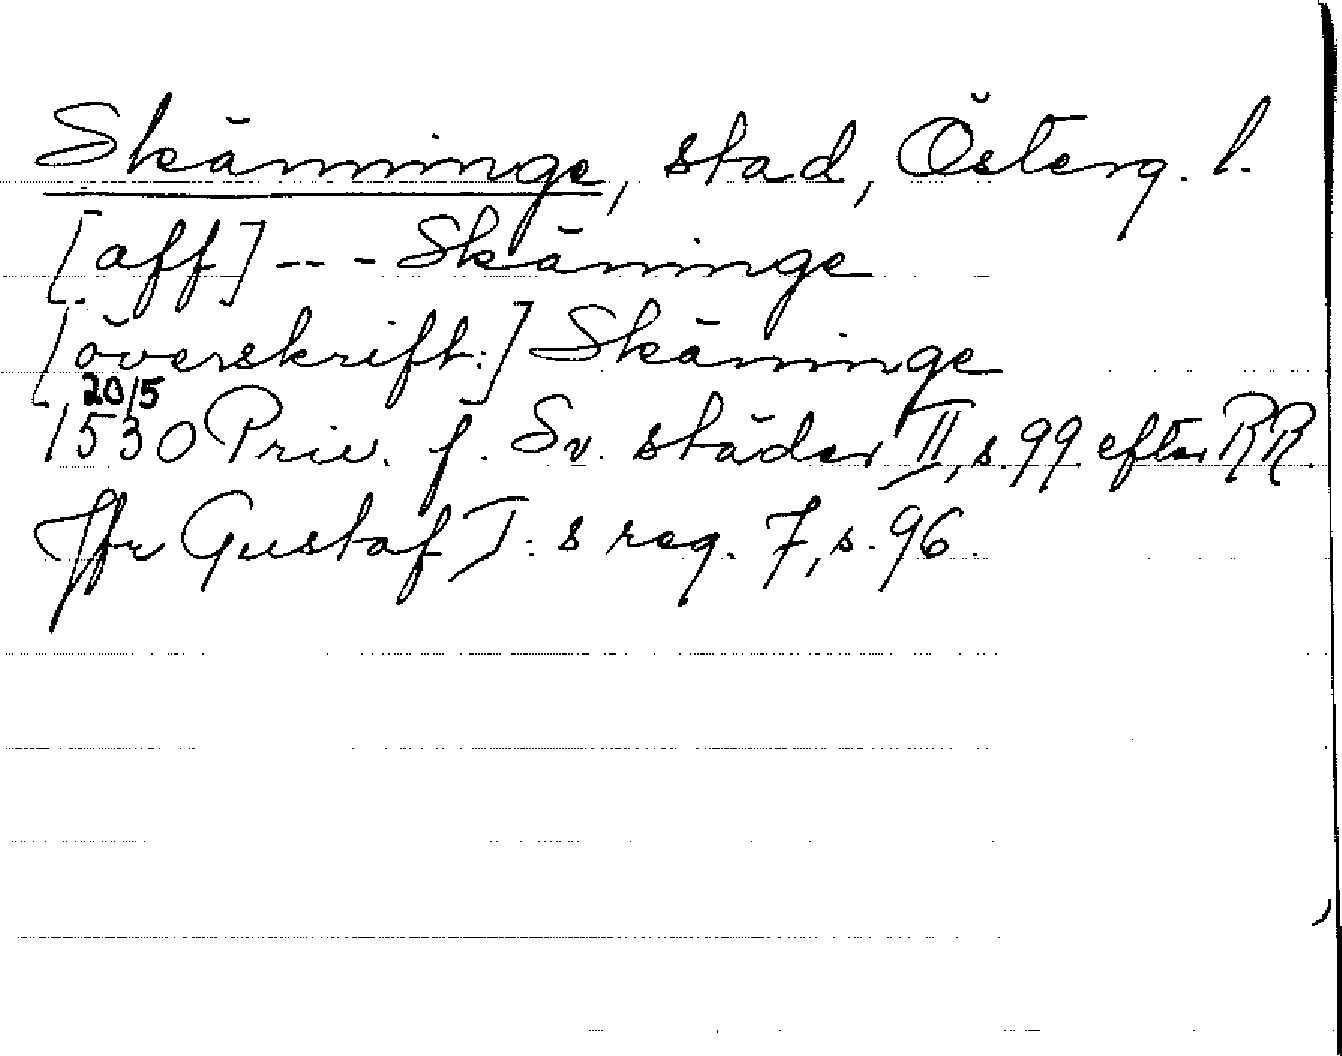 Skänninge, stad, Österg. l.
[aff] --- Skäninge
[överskrift:] Skäninge
20/5
1530 Priv. f. Sv. städer II, s. 99 efter RR.
Jfr Gustaf I:s reg. 7, s. 96.